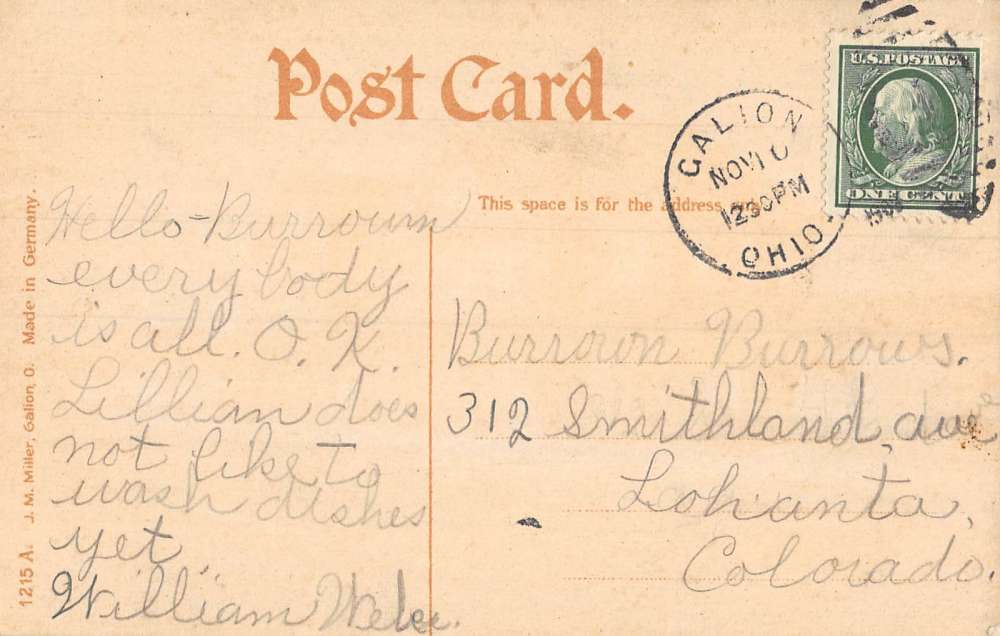 Post Card.
U.S. POSTAGE
ONE CENT
GALION
NOV 10
1230PM
OHIO
This space is for the address
1215 A. J. M. Miller, Galion, O. Made in Germany.
Hello-Burroum
everybody
is all. O. K.
Lillian does
not like to
wash dishes
yet
William
Burroron Burrows.
312 Smithland, ave
Lohanta,
Colorado.